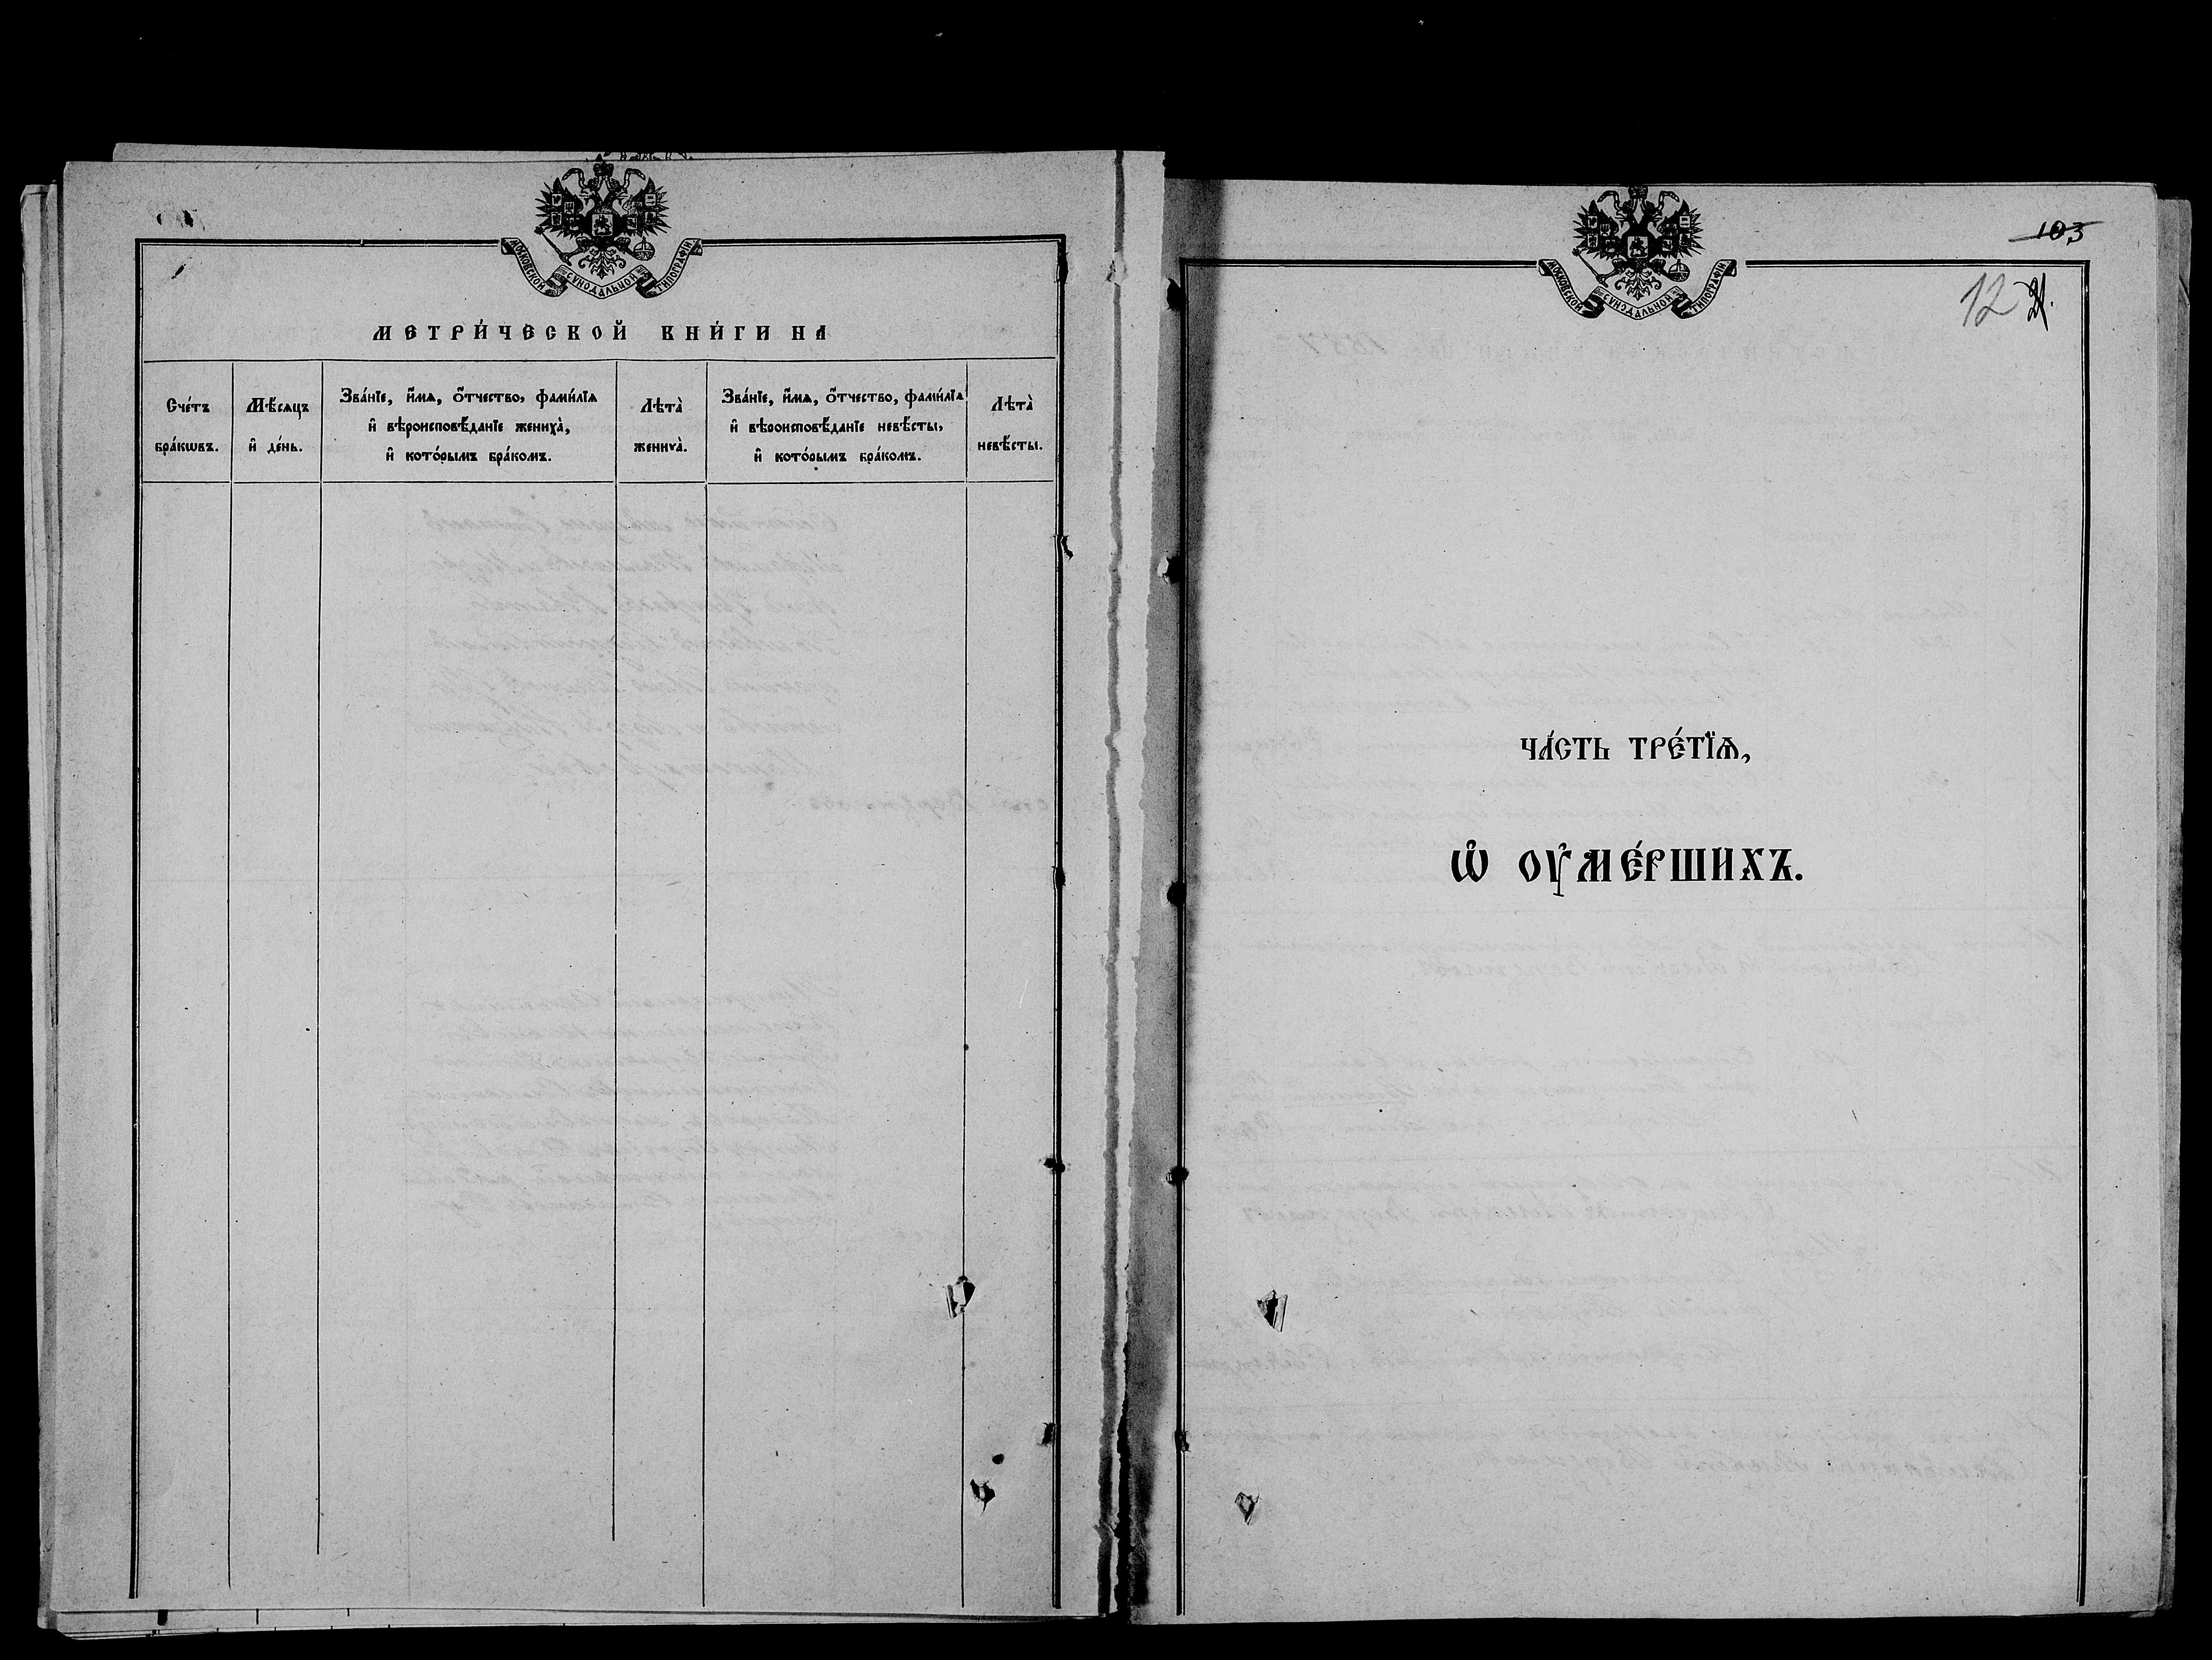 МОСКОВСКОЙ СѴНОДАЛЬНОЙ ТИПОГРАФІИ
МЕТРИ́ЧЕСКОЙ КНИ́ГИ НА
Сче́тъ
бра́кωвъ.
Мѣ́сѧцъ
и҆ де́нь.
Зва́нїе, и҆́мѧ, ѻ҆́тчество, фами́лїѧ
и҆ вѣроисповѣ́данїе жениха̀,
и҆ кото́рымъ бра́комъ.
Лѣта̀
жениха̀.
Зва́нїе, и҆́мѧ, ѻ҆́тчество, фами́лїѧ
и҆ вѣроисповѣ́данїе невѣ́сты,
и҆ кото́рымъ бра́комъ.
Лѣта̀
невѣ́сты.
МОСКОВСКОЙ СѴНОДАЛЬНОЙ ТИПОГРАФІИ
103
12
ЧА́СТЬ ТРЕ́ТЇѦ,
Ѡ҆ ОУ҆МЕ́РШИХЪ.